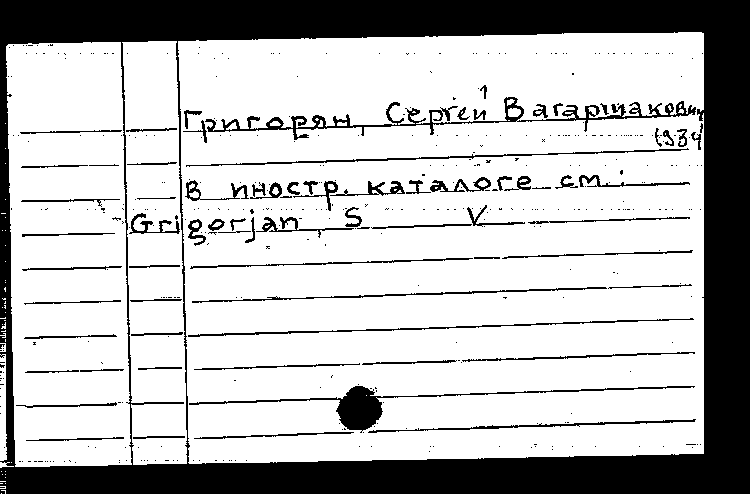 Григорян, Сергей Вагаршакович
1934
В иностр. каталоге см.:
Grigorjan, S V